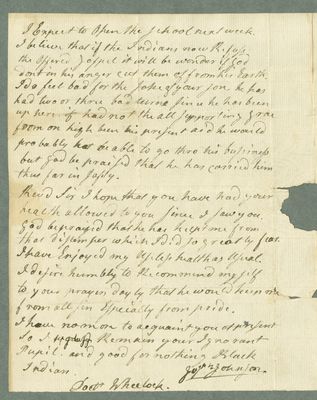 I Expect to Open the School next week.
I believe that if the Indians now Refuse
the offered Gospel it will be wonder if God
dont in his anger cut them of from his Earth.
I do feel bad for the sake of your son he has
had two or three bad turns since he has been
up here. if had not the all supporting grace
from on high been his present aid he would
probably not be able to go thro his business
but God be praised that he has carried them
thus far in safty.
Revd Sir I hope that you have had your
health allowed to you since I saw you.
God be praised that he has kept me from
that distemper which I did so greatly fear.
I have Enjoyed my Health as Usual.
I desire humbly to Recommend my self
to your prayers dayly that he would keep me
from all sin Especially from pride.
I have no more to acquaint you at present
So I Remain your Ignorant
Pupil. and good for nothing Black
Indian. Johnson.
Doctr Wheelock.